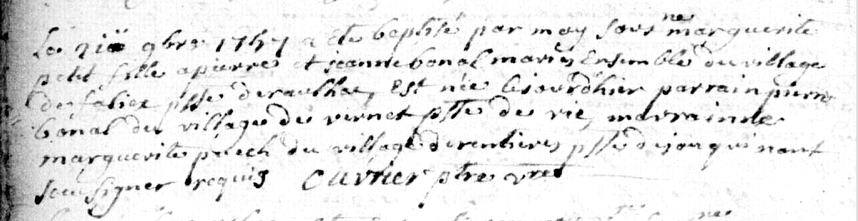 Le 21è 9bre 1757 a été baptisé par moy sousné marguerite
petit fille a pierre et jeanne bonal mariés Ensemble du village
de falies psse de raulhac, est née le jourdhier parrain pierre
bonal du village du vernet psse de vic, marrainne
marguerite puech du village de rentieres psse de jou qui n'ont
sçeu signer requis Cuvelier ptre vre